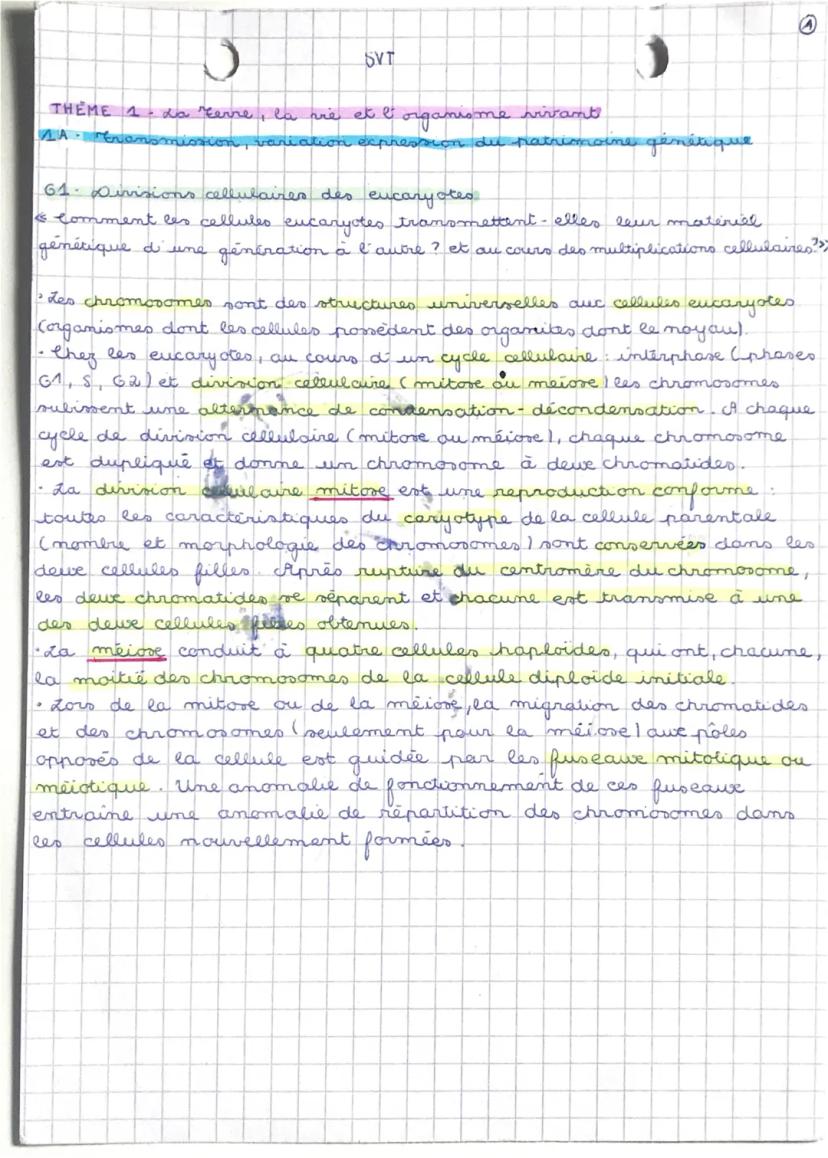 ①
SVT
THÈME 1 - La Terre, la vie et l'organisme vivant
1A - Transmission, variation expression du patrimoine génétique
G1 - Divisions cellulaires des eucaryotes
« Comment les cellules eucaryotes transmettent-elles leur matériel
génétique d'une génération à l'autre ? et au cours des multiplications cellulaires ? »
• Les chromosomes sont des structures universelles aux cellules eucaryotes
(organismes dont les cellules possèdent des organites dont le noyau).
• Chez les eucaryotes, au cours d'un cycle cellulaire : interphase (phases
G1, S, G2) et division cellulaire (mitose ou méiose) les chromosomes
subissent une alternance de condensation-décondensation. A chaque
cycle de division cellulaire (mitose ou méiose), chaque chromosome
est dupliqué et donne un chromosome à deux chromatides.
• La division cellulaire mitose est une reproduction conforme :
toutes les caractéristiques du caryotype de la cellule parentale
(nombre et morphologie des chromosomes) sont conservées dans les
deux cellules filles. Après rupture du centromère du chromosome,
les deux chromatides se séparent et chacune est transmise à une
des deux cellules filles obtenues.
• La méiose conduit à quatre cellules haploïdes, qui ont, chacune,
la moitié des chromosomes de la cellule diploïde initiale.
• Lors de la mitose ou de la méiose, la migration des chromatides
et des chromosomes (seulement pour la méiose) aux pôles
opposés de la cellule est guidée par les fuseaux mitotique ou
méiotique. Une anomalie de fonctionnement de ces fuseaux
entraine une anomalie de répartition des chromosomes dans
les cellules nouvellement formées.